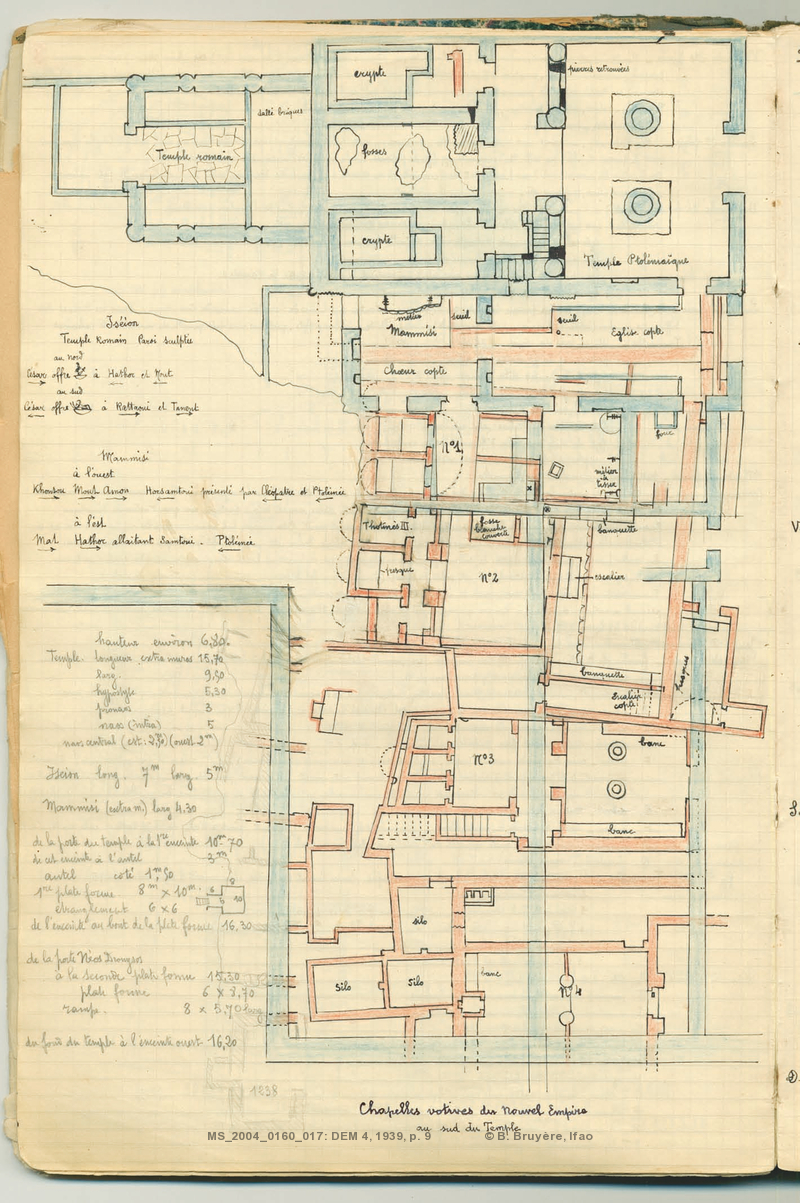 crypte
pierres retrouvées
salle briques
Temple romain
fosses
crypte
Temple Ptolémaïque
Iséion
Temple Romain Paroi sculptée
au nord
César offre à Hathor et Mout
au sud
César offre à Rattaoui et Tanent
métier
Mammisi
seuil
seuil
Eglise copte
Chœur copte
Mammisi
à l'ouest
Khonsou Mont Amon Horsamtoui présenté par Cléopâtre et Ptolémée
à l'est
Mat Hathor allaitant Samtoui - Ptolémée
N°1
four
métier
à
tisser
Thotmès III.
fosse
blanche
couverte
banquette
N°2
escalier
banquette
Escalier
copte
fresques
hauteur environ 6,80.
Temple. longueur extra muros 15,70
larg. 9,50
hypostyle 5,30
pronaos 3
naos (intra) 5
naos central (est: 2,50) (ouest 2m)
Iséion long. 7m larg. 5m
Mammisi (extra m.) larg 4,30
N°3
banc
banc
de la porte du temple à la 1re enceinte 10m70
de cet enceinte à l'autel 3m
autel coté 1m,50
1re plate forme 8m × 10m.
étranglement 6 × 6
de l'enceinte au bout de la plate forme 16,30
de la porte Néos Dionysos
à la seconde plate forme 15,30
plate forme 6 × 8,70
rampe. 8 × 5,70 larg
du fond du temple à l'enceinte ouest. 16,20
silo
silo
silo
banc
N°4
1238
Chapelles votives du Nouvel Empire
au sud du Temple
MS_2004_0160_017: DEM 4, 1939, p. 9 © B. Bruyère, Ifao